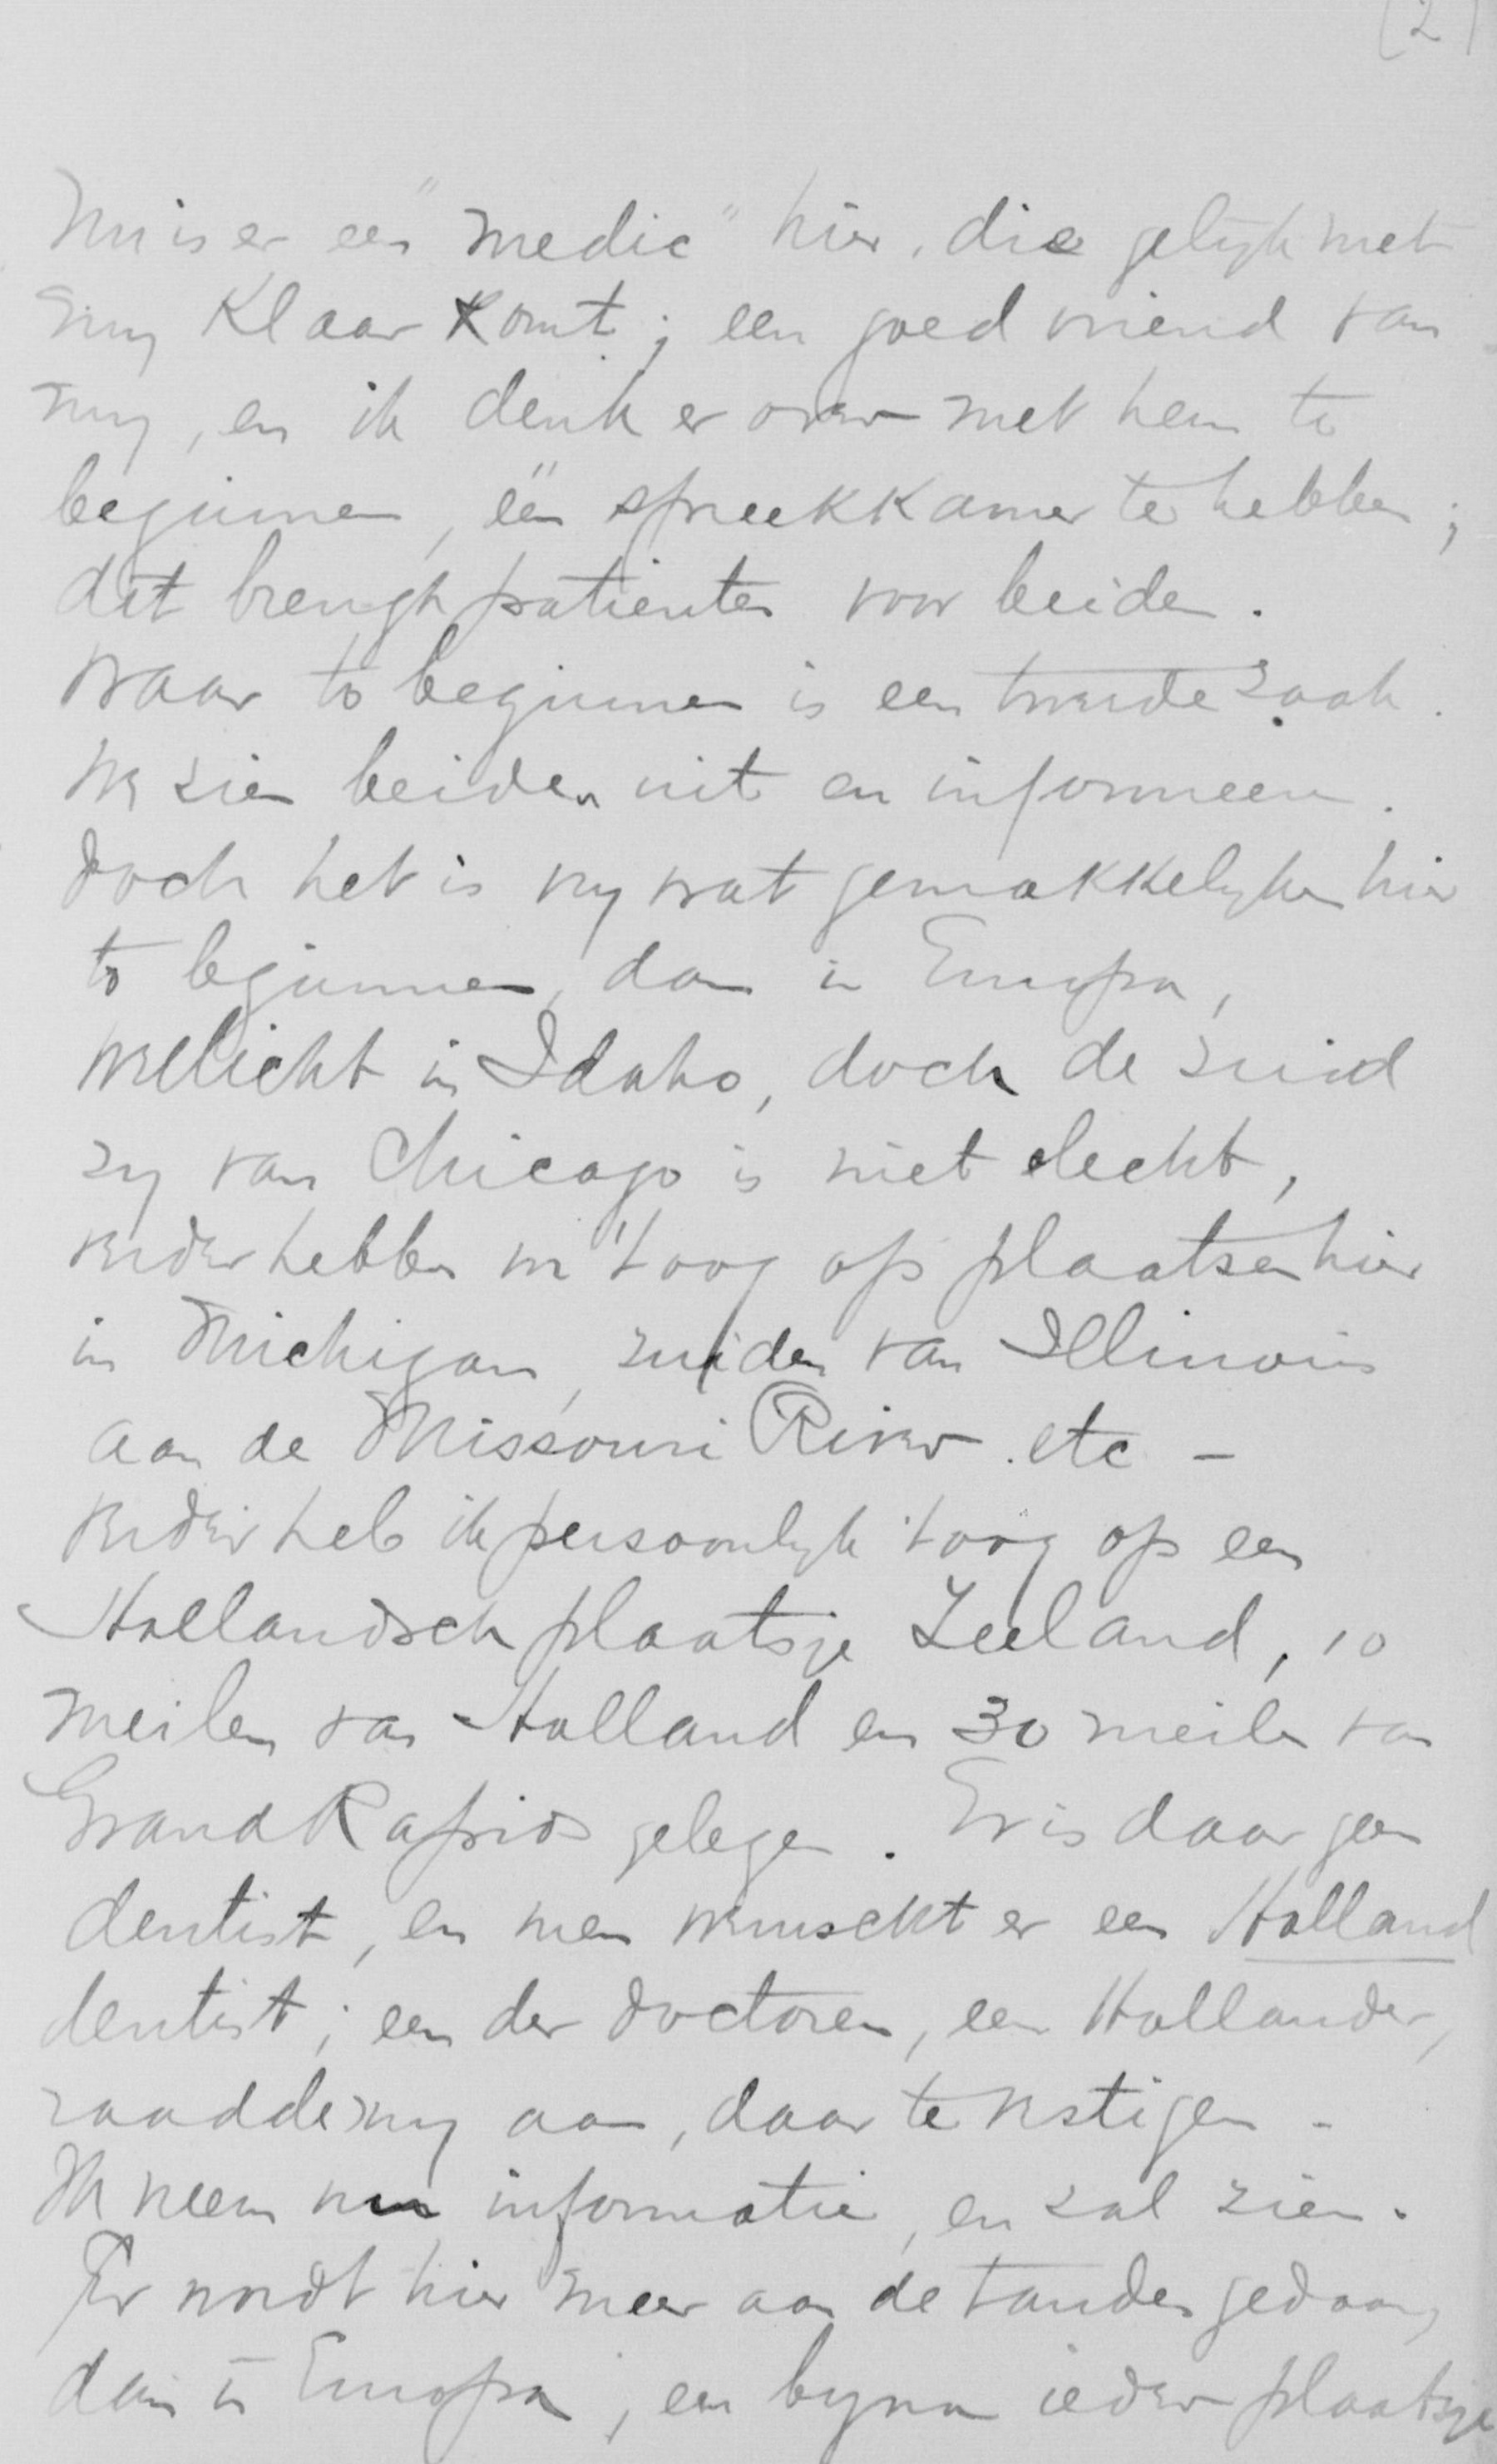 (2)
Nu is er een "medic" hier, die gelijk met
my klaar komt; een goed vriend van
my, en ik denk er over met hem te
beginnen, één spreekkamer te hebben;
dat brengt patienten voor beiden.
Waar te beginnen is een tweede zaak.
We zien beiden uit en informeeren.
Doch het is vry wat gemakkelyker hier
te beginnen, dan in Europa,
Wellicht in Idaho, doch de zuid
zy van Chicago is niet slecht,
verder hebben we 't oog op plaatsen hier
in Michigan, zuiden van Illinois
aan de Missouri River. etc –
Verder heb ik persoonlyk 't oog op een
Hollandsch plaatsje Zeeland, 10
meilen van Holland en 30 meilen van
Grand Rapids gelegen. Er is daar geen
dentist, en men wenscht er een Holland
dentist; een der doctoren, een Hollander,
raadde my aan, daar te vestigen –
Ik neem nu informatie, en zal zien.
Er wordt hier meer aan de tanden gedaan,
dan in Europa, en byna ieder plaatsje